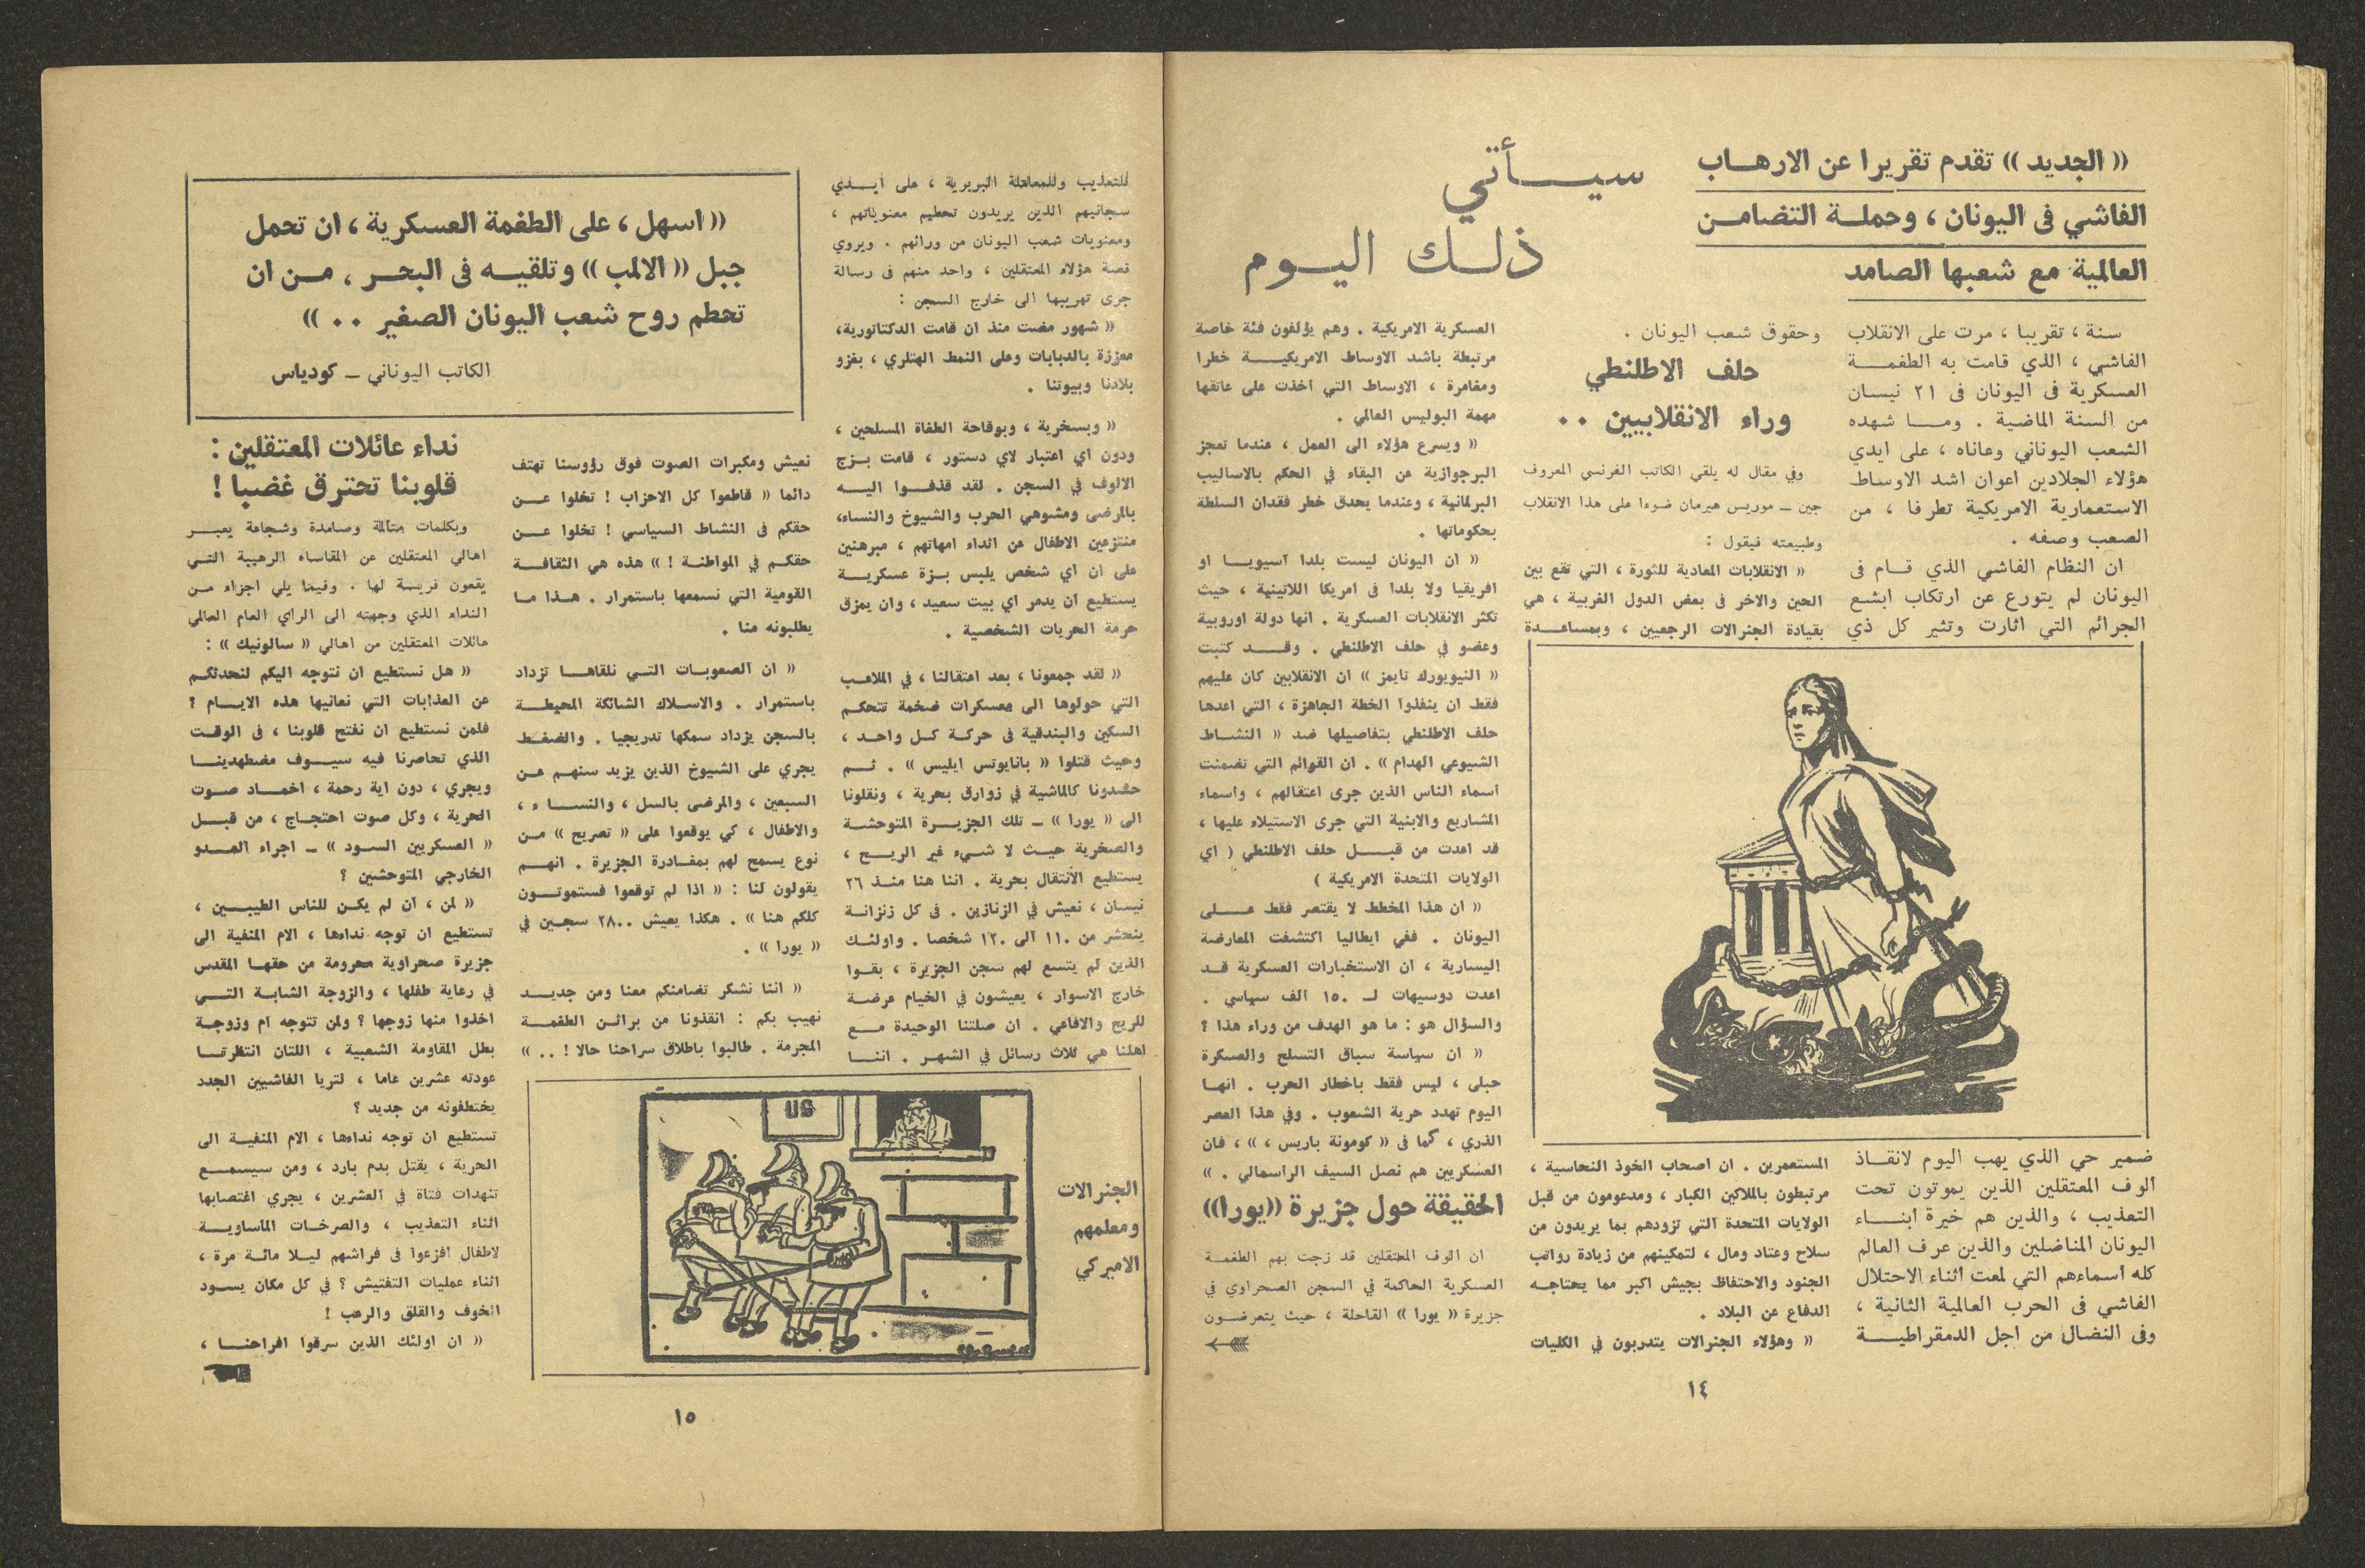 (( الجديد )) تقدم تقريرا عن الارهـــاب
الفاشي فى اليونان ، وحملـــة التضامــن
العالمية مع شعبها الصامد
سيـــأتي
ذلــك اليــوم
سنة ، تقريبا ، مرت على الانقلاب
الفاشي ، الذي قامت به الطغمــــة
العسكرية فى اليونان فى ٢١ نيسـان
من السنة الماضية . ومـــا شهده
الشعب اليوناني وعاناه ، على ايدي
هؤلاء الجلادين اعوان اشد الاوساط
الاستعمارية الامريكية تطرفا ، من
الصعب وصفه .
ان النظام الفاشي الذي قـــام فى
اليونان لم يتورع عن ارتكاب ابشع
الجرائم التي اثارت وتثير كل ذي
ضمير حي الذي يهب اليوم لانقــاذ
الوف المعتقلين الذين يموتون تحت
التعذيب ، والذين هم خيرة ابنـــاء
اليونان المناضلين والذين عرف العالم
كله اسماءهم التي لمعت اثناء الاحتلال
الفاشي فى الحرب العالمية الثانية ،
وفى النضال من اجل الدمقراطيـــة
وحقوق شعب اليونان .
حلف الاطلنطي
وراء الانقلابيين ٠٠
وفي مقال له يلقي الكاتب الفرنسي المعروف
جين ــ موريس هيرمان ضوءا على هذا الانقلاب
وطبيعته فيقول :
(( الانقلابات المعادية للثورة ، التي تقع بين
الحين والاخر فى بعض الدول الغربية ، هي
بقيادة الجنرالات الرجعيين ، وبمساعـــدة
المستعمرين . ان اصحاب الخوذ النحاسية ،
مرتبطون بالملاكين الكبار ، ومدعومون من قبل
الولايات المتحدة التي تزودهم بما يريدون من
سلاح وعتاد ومال ، لتمكينهم من زيادة رواتب
الجنود والاحتفاظ بجيش اكبر مما يحتاجــه
الدفاع عن البلاد .
(( وهؤلاء الجنرالات يتدربون في الكليات
العسكرية الامريكية . وهم يؤلفون فئة خاصة
مرتبطة باشد الاوساط الامريكيــــة خطرا
ومغامرة ، الاوساط التي اخذت على عاتقها
مهمة البوليس العالمي .
(( ويسرع هؤلاء الى العمل ، عندما تعجز
البرجوازية عن البقاء في الحكم بالاساليب
البرلمانية ، وعندما يحدق خطر فقدان السلطة
بحكوماتها .
(( ان اليونان ليست بلدا آسيويـــا او
افريقيا ولا بلدا فى امريكا اللاتينية ، حيث
تكثر الانقلابات العسكرية . انها دولة اوروبية
وعضو في حلف الاطلنطي . وقـــد كتبت
(( النيويورك تايمز )) ان الانقلابين كان عليهم
فقط ان ينفذوا الخطة الجاهزة ، التي اعدها
حلف الاطلنطي بتفاصيلها ضد (( النشــاط
الشيوعي الهدام )) . ان القوائم التي تضمنت
اسماء الناس الذين جرى اعتقالهم ، واسماء
المشاريع والابنية التي جرى الاستيلاء عليها ،
قد اعدت من قبـــل حلف الاطلنطي ( اي
الولايات المتحدة الامريكية )
(( ان هذا المخطط لا يقتصر فقط عـــلى
اليونان . ففي ايطاليا اكتشفت المعارضة
اليسارية ، ان الاستخبارات العسكرية قــد
اعدت دوسيهات لــ ١٥٠ الف سياسي .
والسؤال هو : ما هو الهدف من وراء هذا ؟
(( ان سياسة سباق التسلح والعسكرة
حبلى ، ليس فقط باخطار الحرب . انهـا
اليوم تهدد حرية الشعوب . وفي هذا العصر
الذري ، كما فى (( كومونة باريس ، )) ، فان
العسكريين هم نصل السيف الراسمالي . ))
الحقيقة حول جزيرة ((يورا))
ان الوف المعتقلين قد زجت بهم الطغمــة
العسكرية الحاكمة في السجن الصحراوي في
جزيرة (( يورا )) القاحلة ، حيث يتعرضــون
١٤
للتعذيب وللمعاملة البربرية ، على ايـــدي
سجانيهم الذين يريدون تحطيم معنوياتهم ،
ومعنويات شعب اليونان من ورائهم . ويروي
قصة هؤلاء المعتقلين ، واحد منهم فى رسالة
جرى تهريبها الى خارج السجن :
(( شهور مضت منذ ان قامت الدكتاتورية،
معززة بالدبابات وعلى النمط الهتلري ، بغزو
بلادنا وبيوتنا .
(( وبسخرية ، وبوقاحة الطغاة المسلحين ،
ودون اي اعتبار لاي دستور ، قامت بــزج
الالوف في السجن . لقد قذفـــوا اليــه
بالمرضى ومشوهي الحرب والشيوخ والنساء،
منتزعين الاطفال عن اثداء امهاتهم ، مبرهنين
على ان اي شخص يلبس بــزة عسكريـــة
يستطيع ان يدمر اي بيت سعيد ، وان يمزق
حرمة الحريات الشخصية .
(( لقد جمعونا ، بعد اعتقالنا ، في الملاعـب
التي حولوها الى معسكرات ضخمة تتحكــم
السكين والبندقية فى حركة كــل واحـد ،
وحيث قتلوا (( بانايوتس ايليس )) . ثـــم
حشدونا كالماشية في زوارق بحرية ، ونقلونا
الى (( يورا )) ــ تلك الجزيــرة المتوحشــة
والصخرية حيــث لا شــيء غير الريــح ،
يستطيع الانتقال بحرية . اننا هنا منــذ ٢٦
نيسان ، نعيش في الزنازين . فى كل زنزانــة
ينحشر من ١١٠ الى ١٢٠ شخصا . واولئــك
الذين لم يتسع لهم سجن الجزيرة ، بقــوا
خارج الاسوار ، يعيشون في الخيام عرضــة
للريح والافاعي . ان صلتنا الوحيدة مـــع
اهلنا هي ثلاث رسائل في الشهــر . اننـــا
نعيش ومكبرات الصوت فوق رؤوسنا تهتف
دائما (( قاطعوا كل الاحزاب ! تخلوا عـــن
حقكم فى النشاط السياسي ! تخلوا عـــن
حقكــم في المواطنــة ! )) هذه هي الثقافــة
القومية التي نسمعها باستمرار . هــذا مـا
يطلبونه منا .
(( ان الصعوبــات التــي نلقاهــا تزداد
باستمرار . والاســلاك الشائكة المحيطــة
بالسجن يزداد سمكها تدريجيا . والضغــط
يجري على الشيوخ الذين يزيد سنهــم عـن
السبعين ، والمرضى بالسل ، والنســـاء ،
والاطفال ، كي يوقعوا على (( تصريح )) مــن
نوع يسمح لهم بمغـادرة الجزيرة . انهـــم
يقولون لنا : (( اذا لم توقعوا فستموتـــون
كلكم هنا )) . هكذا يعيش ٢٨٠٠ سجــين في
(( يورا )) .
(( اننا نشكر تضامنكم معنا ومن جديـــد
نهيب بكم : انقذونا من براثــن الطغمـــة
المجرمة . طالبوا باطلاق سراحنا حالا ! .. ))
الجنرالات
ومعلمهم
الاميركي
US
(( اسهل ، على الطغمة العسكرية ، ان تحمل
جبل (( الالمب )) وتلقيــه فى البحــر ، مــن ان
تحطم روح شعب اليونان الصغير ٠٠ ))
الكاتب اليوناني ــ كودياس
نداء عائلات المعتقلين :
قلوبنا تحترق غضبا !
وبكلمات متألمة وصامدة وشجاعة يعبـــر
اهالي المعتقلين عن المقاساه الرهيبة التــي
يقعون فريسة لها . وفيما يلي اجزاء مــن
النداء الذي وجهته الى الراي العام العالمي
عائلات المعتقلين من اهالي (( سالونيك )) :
(( هل نستطيع ان نتوجه اليكم لنحدثكــم
عن العذابات التي نعانيها هذه الايـــام ؟
فلمن نستطيع ان نفتح قلوبنا ، فى الوقـت
الذي تحاصرنا فيه سيـــوف مضطهدينـــا
ويجري ، دون اية رحمة ، اخمــاد صــوت
الحرية ، وكل صوت احتجــاج ، من قبــل
(( العسكريين الســود )) ــ اجراء العــدو
الخارجي المتوحشين ؟
(( لمن ، ان لم يكــن للناس الطيبــين ،
تستطيع ان توجه نداءها ، الام المنفية الى
جزيرة صحراوية محرومة من حقهــا المقدس
في رعاية طفلها ، والزوجة الشابــة التـــي
اخذوا منها زوجها ؟ ولمن تتوجه ام وزوجـة
بطل المقاومة الشعبية ، اللتان انتظرتــا
عودته عشرين عاما ، لتريا الفاشيين الجدد
يختطفونه من جديد ؟
تستطيع ان توجه نداءها ، الام المنفيــة الى
الحرية ، يقتل بدم بارد ، ومن سيسمـــع
تنهدات فتاة في العشرين ، يجري اغتصابها
اثناء التعذيب ، والصرخــات الماساويــة
لاطفال افزعوا فى فراشهم ليــلا مائــة مرة ،
اثناء عمليات التفتيش ؟ في كل مكان يســود
الخوف والقلق والرعب !
(( ان اولئك الذين سرقوا افراحنـــا ،
١٥